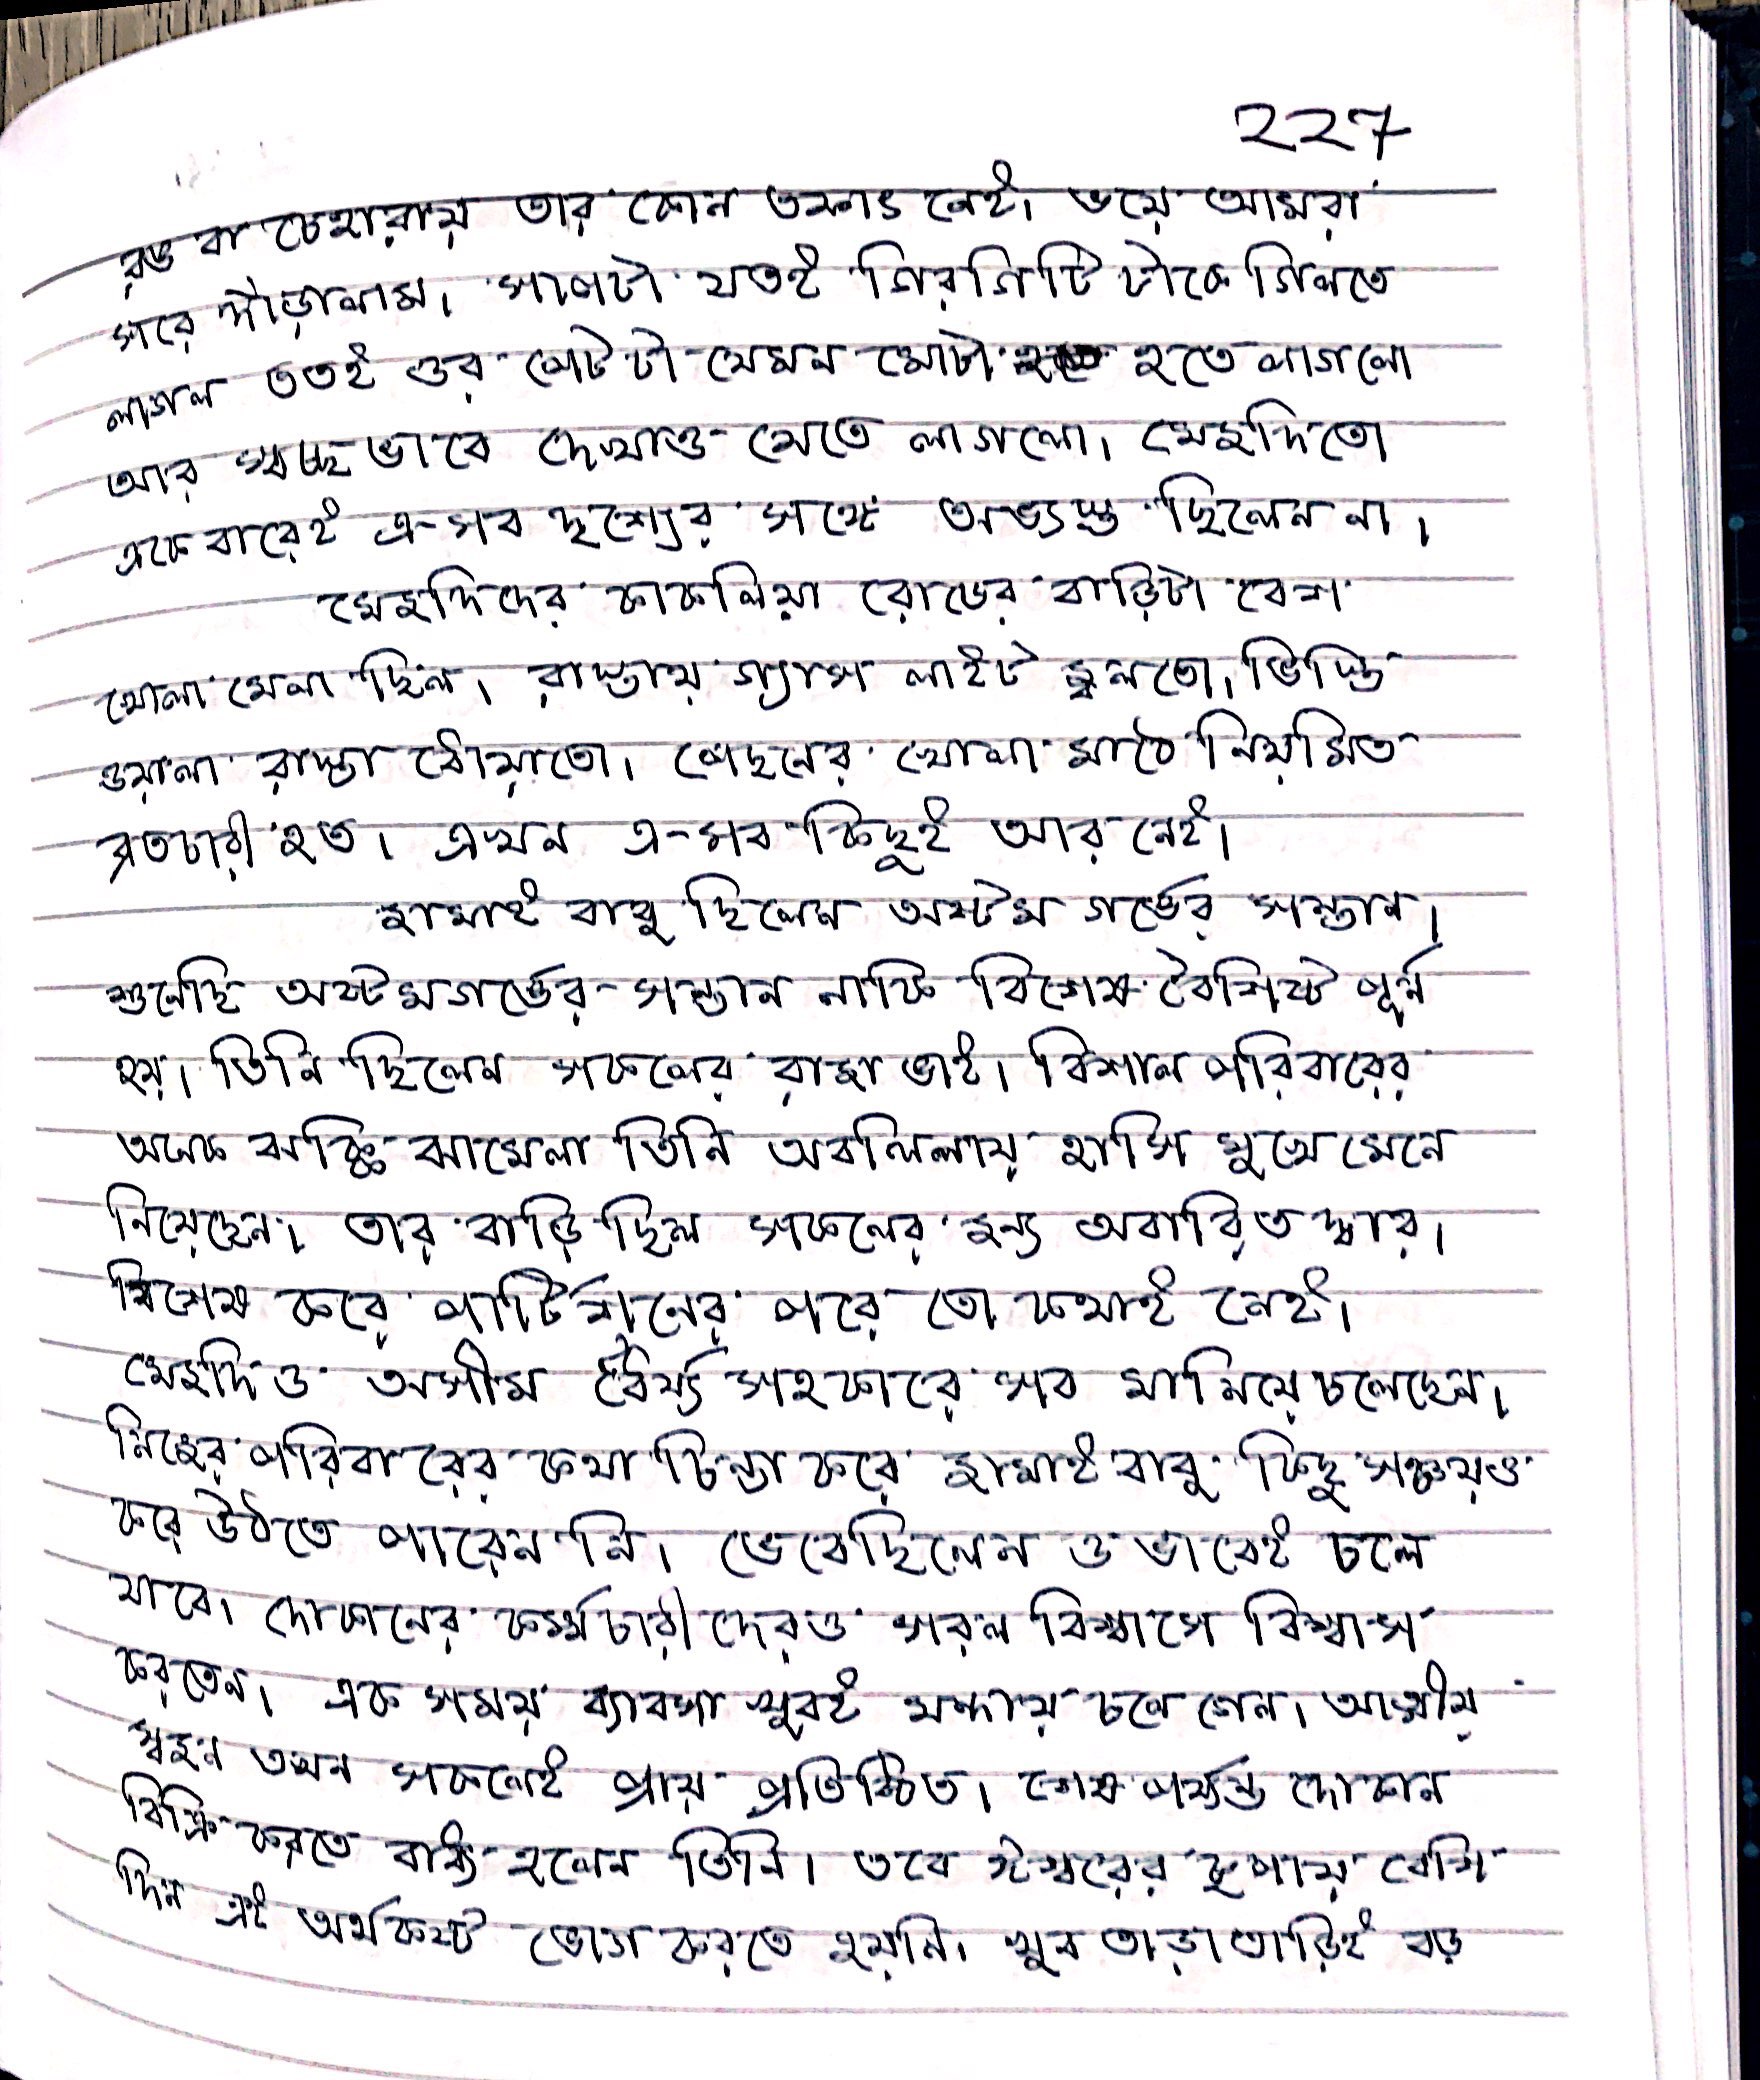 227
রঙ বা চেহারায় তার কোন তফাৎ নেই। ভয়ে আমরা
সরে দাঁড়ালাম। সাপটা যতই গিরগিটি টাকে গিলতে
লাগল ততই ওর পেটটা যেমন মোটা হতে লাগলো
আর স্বচ্ছ ভাবে দেখাও যেতে লাগলো। মেজদিতো
একেবারেই এ-সব দৃশ্যের সঙ্গে অভ্যস্ত ছিলেন না।
মেজদিদের কাকলিয়া রোডের বাড়িটা বেশ
খোলা মেলা ছিল। রাস্তায় গ্যাস লাইট জ্বলতো। ভিস্তি
ওয়ালা রাস্তা ধোয়াতো। পেছনের খোলা মাঠে নিয়মিত
ব্রতচারী হত। এখন এ-সব কিছুই আর নেই।
জামাই বাবু ছিলেন অষ্টম গর্ভের সন্তান।
শুনেছি অষ্টমগর্ভের সন্তান নাকি বিশেষ বৈশিষ্ট পূর্ন
হয়। তিনি ছিলেন সকলের রাজা ভাই। বিশাল পরিবারের
অনেক ঝক্কি ঝামেলা তিনি অবলিলায় হাসি মুখে মেনে
নিয়েছেন। তার বাড়ি ছিল সকলের জন্য অবারিত দ্বার।
বিশেষ করে পার্টিশনের পরে তো কথাই নেই।
মেজদিও অসীম ধৈর্য্য সহকারে সব মানিয়ে চলেছেন।
নিজের পরিবারের কথা চিন্তা করে জামাই বাবু কিছু সঞ্চয়ও
করে উঠতে পারেন নি। ভেবেছিলেন ওভাবেই চলে
যাবে। দোকানের কর্ম্মচারী দেরও সরল বিশ্বাসে বিশ্বাস
করতেন। এক সময় ব্যাবসা খুবই মন্দায় চলে গেল। আত্মীয়
স্বজন তখন সকলেই প্রায় প্রতিষ্ঠিত। শেষ পর্য্যন্ত দোকান
বিক্রি করতে বাধ্য হলেন তিনি। তবে ঈশ্বরের কৃপায় বেশি
দিন এই অর্থকষ্ট ভোগ করতে হয়নি। খুব তাড়াতাড়িই বড়